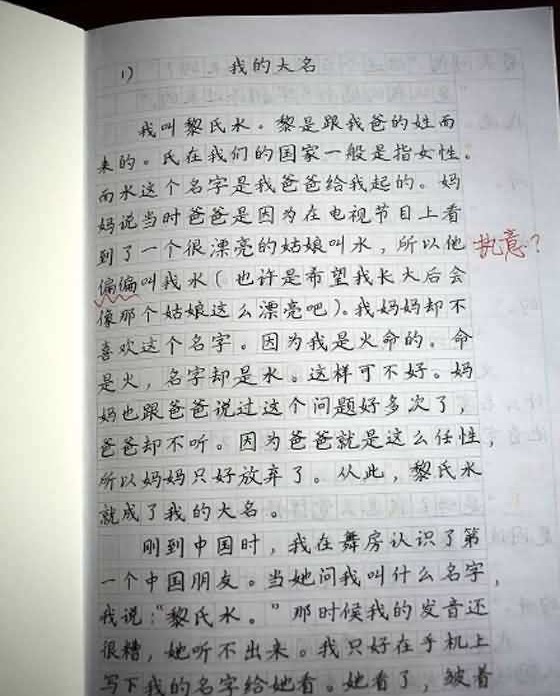 1) 我的大名
我叫黎氏水。黎是跟我爸的姓而
来的。氏在我们的国家一般是指女性。
而水这个名字是我爸爸给我起的。妈
妈说当时爸爸是因为在电视节目上看
到了一个很漂亮的姑娘叫水，所以他 执意？
偏偏叫我水（也许是希望我长大后会
像那个姑娘这么漂亮吧）。我妈妈却不
喜欢这个名字。因为我是火命的。命
是火，名字却是水。这样可不好。妈
妈也跟爸爸说过这个问题好多次了，
爸爸却不听。因为爸爸就是这么任性，
所以妈妈只好放弃了。从此，黎氏水
就成了我的大名。
刚到中国时，我在舞房认识了第
一个中国朋友。当她问我叫什么名字，
我说：“黎氏水。”那时候我的发音还
很糟，她听不出来。我只好在手机上
写下我的名字给她看。她看了，皱着